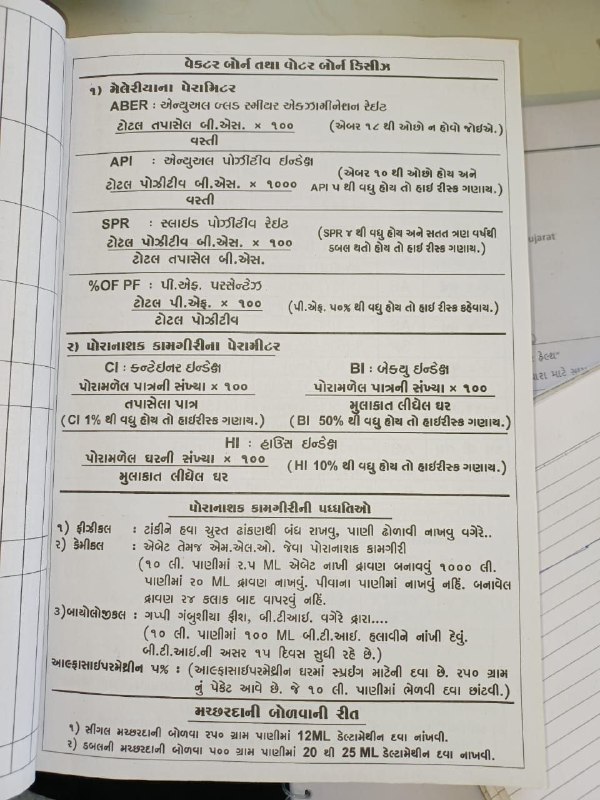 વેક્ટર બોર્ન તથા વોટર બોર્ન ડિસીઝ
૧) મેલેરીયાના પેરામિટર
ABER : એન્યુઅલ બ્લડ સ્મીયર એકઝામીનેશન રેઈટ
ટોટલ તપાસેલ બી.એસ. × ૧૦૦ (એબર ૧૮ થી ઓછો ન હોવો જોઈએ.)
વસ્તી
API : એન્યુઅલ પોઝીટીવ ઈન્ડેક્ષ
ટોટલ પોઝીટીવ બી.એસ. × ૧૦૦૦ (એબર ૧૦ થી ઓછો હોય અને
વસ્તી API ૫ થી વધુ હોય તો હાઈ રીસ્ક ગણાય.)
SPR : સ્લાઈડ પોઝીટીવ રેઈટ
ટોટલ પોઝીટીવ બી.એસ. × ૧૦૦ (SPR ૪ થી વધુ હોય અને સતત ત્રણ વર્ષથી
ટોટલ તપાસેલ બી.એસ. ડબલ થતો હોય તો હાઈ રીસ્ક ગણાય.)
%OF PF : પી.એફ. પરસેન્ટેઝ
ટોટલ પી.એફ. × ૧૦૦ (પી.એફ. ૫૦% થી વધુ હોય તો હાઈ રીસ્ક કહેવાય.)
ટોટલ પોઝીટીવ
૨) પોરાનાશક કામગીરીના પેરામીટર
CI : કન્ટેઈનર ઈન્ડેક્ષ BI : બેક્યુ ઈન્ડેક્ષ
પોરામળેલ પાત્રની સંખ્યા × ૧૦૦ પોરામળેલ પાત્રની સંખ્યા × ૧૦૦
તપાસેલા પાત્ર મુલાકાત લીધેલ ઘર
(CI 1% થી વધુ હોય તો હાઈરીસ્ક ગણાય.) (BI 50% થી વધુ હોય તો હાઈરીસ્ક ગણાય.)
HI : હાઉસ ઈન્ડેક્ષ
પોરામળેલ ઘરની સંખ્યા × ૧૦૦ (HI 10% થી વધુ હોય તો હાઈરીસ્ક ગણાય.)
મુલાકાત લીધેલ ઘર
પોરાનાશક કામગીરીની પધ્ધતિઓ
૧) ફીઝીકલ : ટાંકીને હવા ચુસ્ત ઢાંકણથી બંધ રાખવુ, પાણી ઢોળાવી નાખવુ વગેરે..
૨) કેમીકલ : એબેટ તેમજ એમ.એલ.ઓ. જેવા પોરાનાશક કામગીરી
(૧૦ લી. પાણીમાં ૨.૫ ML એબેટ નાખી દ્રાવણ બનાવવું ૧૦૦૦ લી.
પાણીમાં ૨૦ ML દ્રાવણ નાખવું. પીવાના પાણીમાં નાખવું નહિં. બનાવેલ
દ્રાવણ ૨૪ કલાક બાદ વાપરવું નહિં.
૩)બાયોલોજીકલ : ગપ્પી ગંબુશીયા ફીશ, બી.ટીઆઈ. વગેરે દ્રારા....
(૧૦ લી. પાણીમાં ૧૦૦ ML બી.ટી.આઈ. હલાવીને નાંખી દેવું.
બી.ટી.આઈ.ની અસર ૧૫ દિવસ સુધી રહે છે.)
આલ્ફાસાઈપરમેથ્રીન ૫% : (આલ્ફાસાઈપરમેથ્રીન ઘરમાં સ્પ્રઈંગ માટેની દવા છે. ૨૫૦ ગ્રામ
નું પેકેટ આવે છે. જે ૧૦ લી. પાણીમાં ભેળવી દવા છાંટવી.)
મચ્છરદાની બોળવાની રીત
૧) સીંગલ મચ્છરદાની બોળવા ૨૫૦ ગ્રામ પાણીમાં 12ML ડેલ્ટામેથીન દવા નાંખવી.
૨) ડબલની મચ્છરદાની બોળવા ૫૦૦ ગ્રામ પાણીમાં 20 થી 25 ML ડેલ્ટામેથીન દવા નાખવી.
ujarat